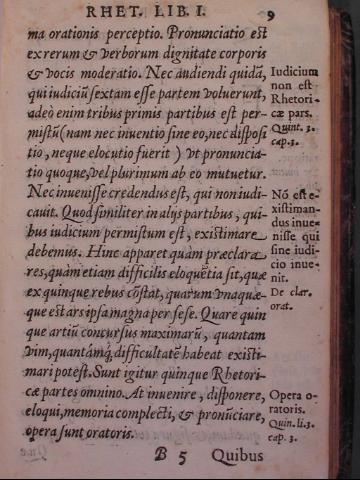 RHET. LIB. I. 9
ma orationis perceptio. Pronunciatio est
ex rerum & verborum dignitate corporis
& vocis moderatio. Nec audiendi quidã,
qui iudiciũ sextam esse partem voluerunt,
adeò enim tribus primis partibus est per-
mistũ (nam nec inuentio sine eo, nec disposi
tio, neque elocutio fuerit) vt pronuncia-
tio quoque, vel plurimum ab eo mutuetur.
Nec inuenisse credendus est, qui non iudi-
cauit. Quod similiter in alijs partibus, qui-
bus iudicium permistum est, existimare
debemus. Hinc apparet quàm præclara
res, quàm etiam difficilis eloquẽtia sit, quæ
ex quinque rebus cõstat, quarum vnaquæ-
que est ars ipsa magna per sese. Quare quin
que artiũ concursus maximarũ, quantam
vim, quantámq; difficultatẽ habeat existi-
mari potest. Sunt igitur quinque Rhetori-
cæ partes omnino. At inuenire, disponere,
eloqui, memoria complecti, & pronũciare,
opera sunt oratoris.
B 5 Quibus
Iudicium
non est
Rhetori-
cæ pars.
Quint. 3.
cap. 3.
Nõ est e-
xistiman-
dus inue-
nisse qui
sine iudi-
cio inue-
nit.
De clar.
orat.
Opera o-
ratoris.
Quin. li. 3.
cap. 3.